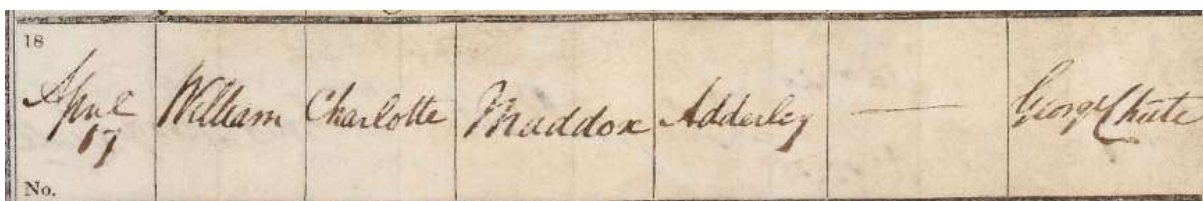 18
April
17
William Charlotte Maddox Adderley — George Chute
No.